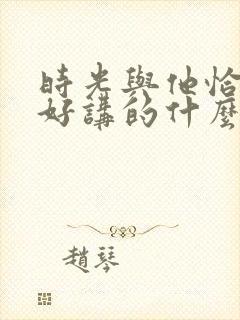 時光與他恰
好講的什麼
趙琴